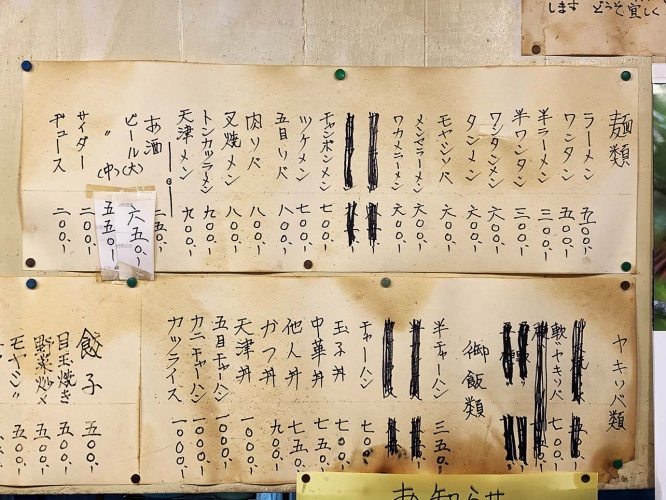 します どうぞ宜しく
麺類
ラーメン 五〇〇.-
ワンタン 五〇〇.-
半ラーメン 三〇〇.-
半ワンタン 三〇〇.-
ワンタンメン 六〇〇.-
タンメン 六〇〇.-
モヤシソバ 六〇〇.-
メンマラーメン 六〇〇.-
ワカメラーメン 六〇〇.-
チャンポンメン 七〇〇.-
ツケメン 七〇〇.-
五目ソバ 八〇〇.-
肉ソバ 八〇〇.-
叉焼メン 八〇〇.-
トンカツラーメン 九〇〇.-
天津メン 九〇〇.-
お酒 二五〇.-
ビール(大) 六五〇.-
〃(中) 五五〇.-
サイダー 二〇〇.-
ヂュース 二〇〇.-
ヤキソバ類
軟ヤキソバ 七〇〇.-
御飯類
半チャーハン 三五〇.-
チャーハン 七〇〇.-
玉子丼 七〇〇.-
中華丼 七五〇.-
他人丼 七五〇.-
カツ丼 九〇〇.-
天津丼 一〇〇〇.-
五目チャーハン 一〇〇〇.-
カニチャーハン 一〇〇〇.-
カツライス 一〇〇〇.-
餃子 五〇〇.-
目玉焼き 五〇〇.-
野菜炒メ 五〇〇.-
モヤシ〃 五〇〇.-
お知らせ